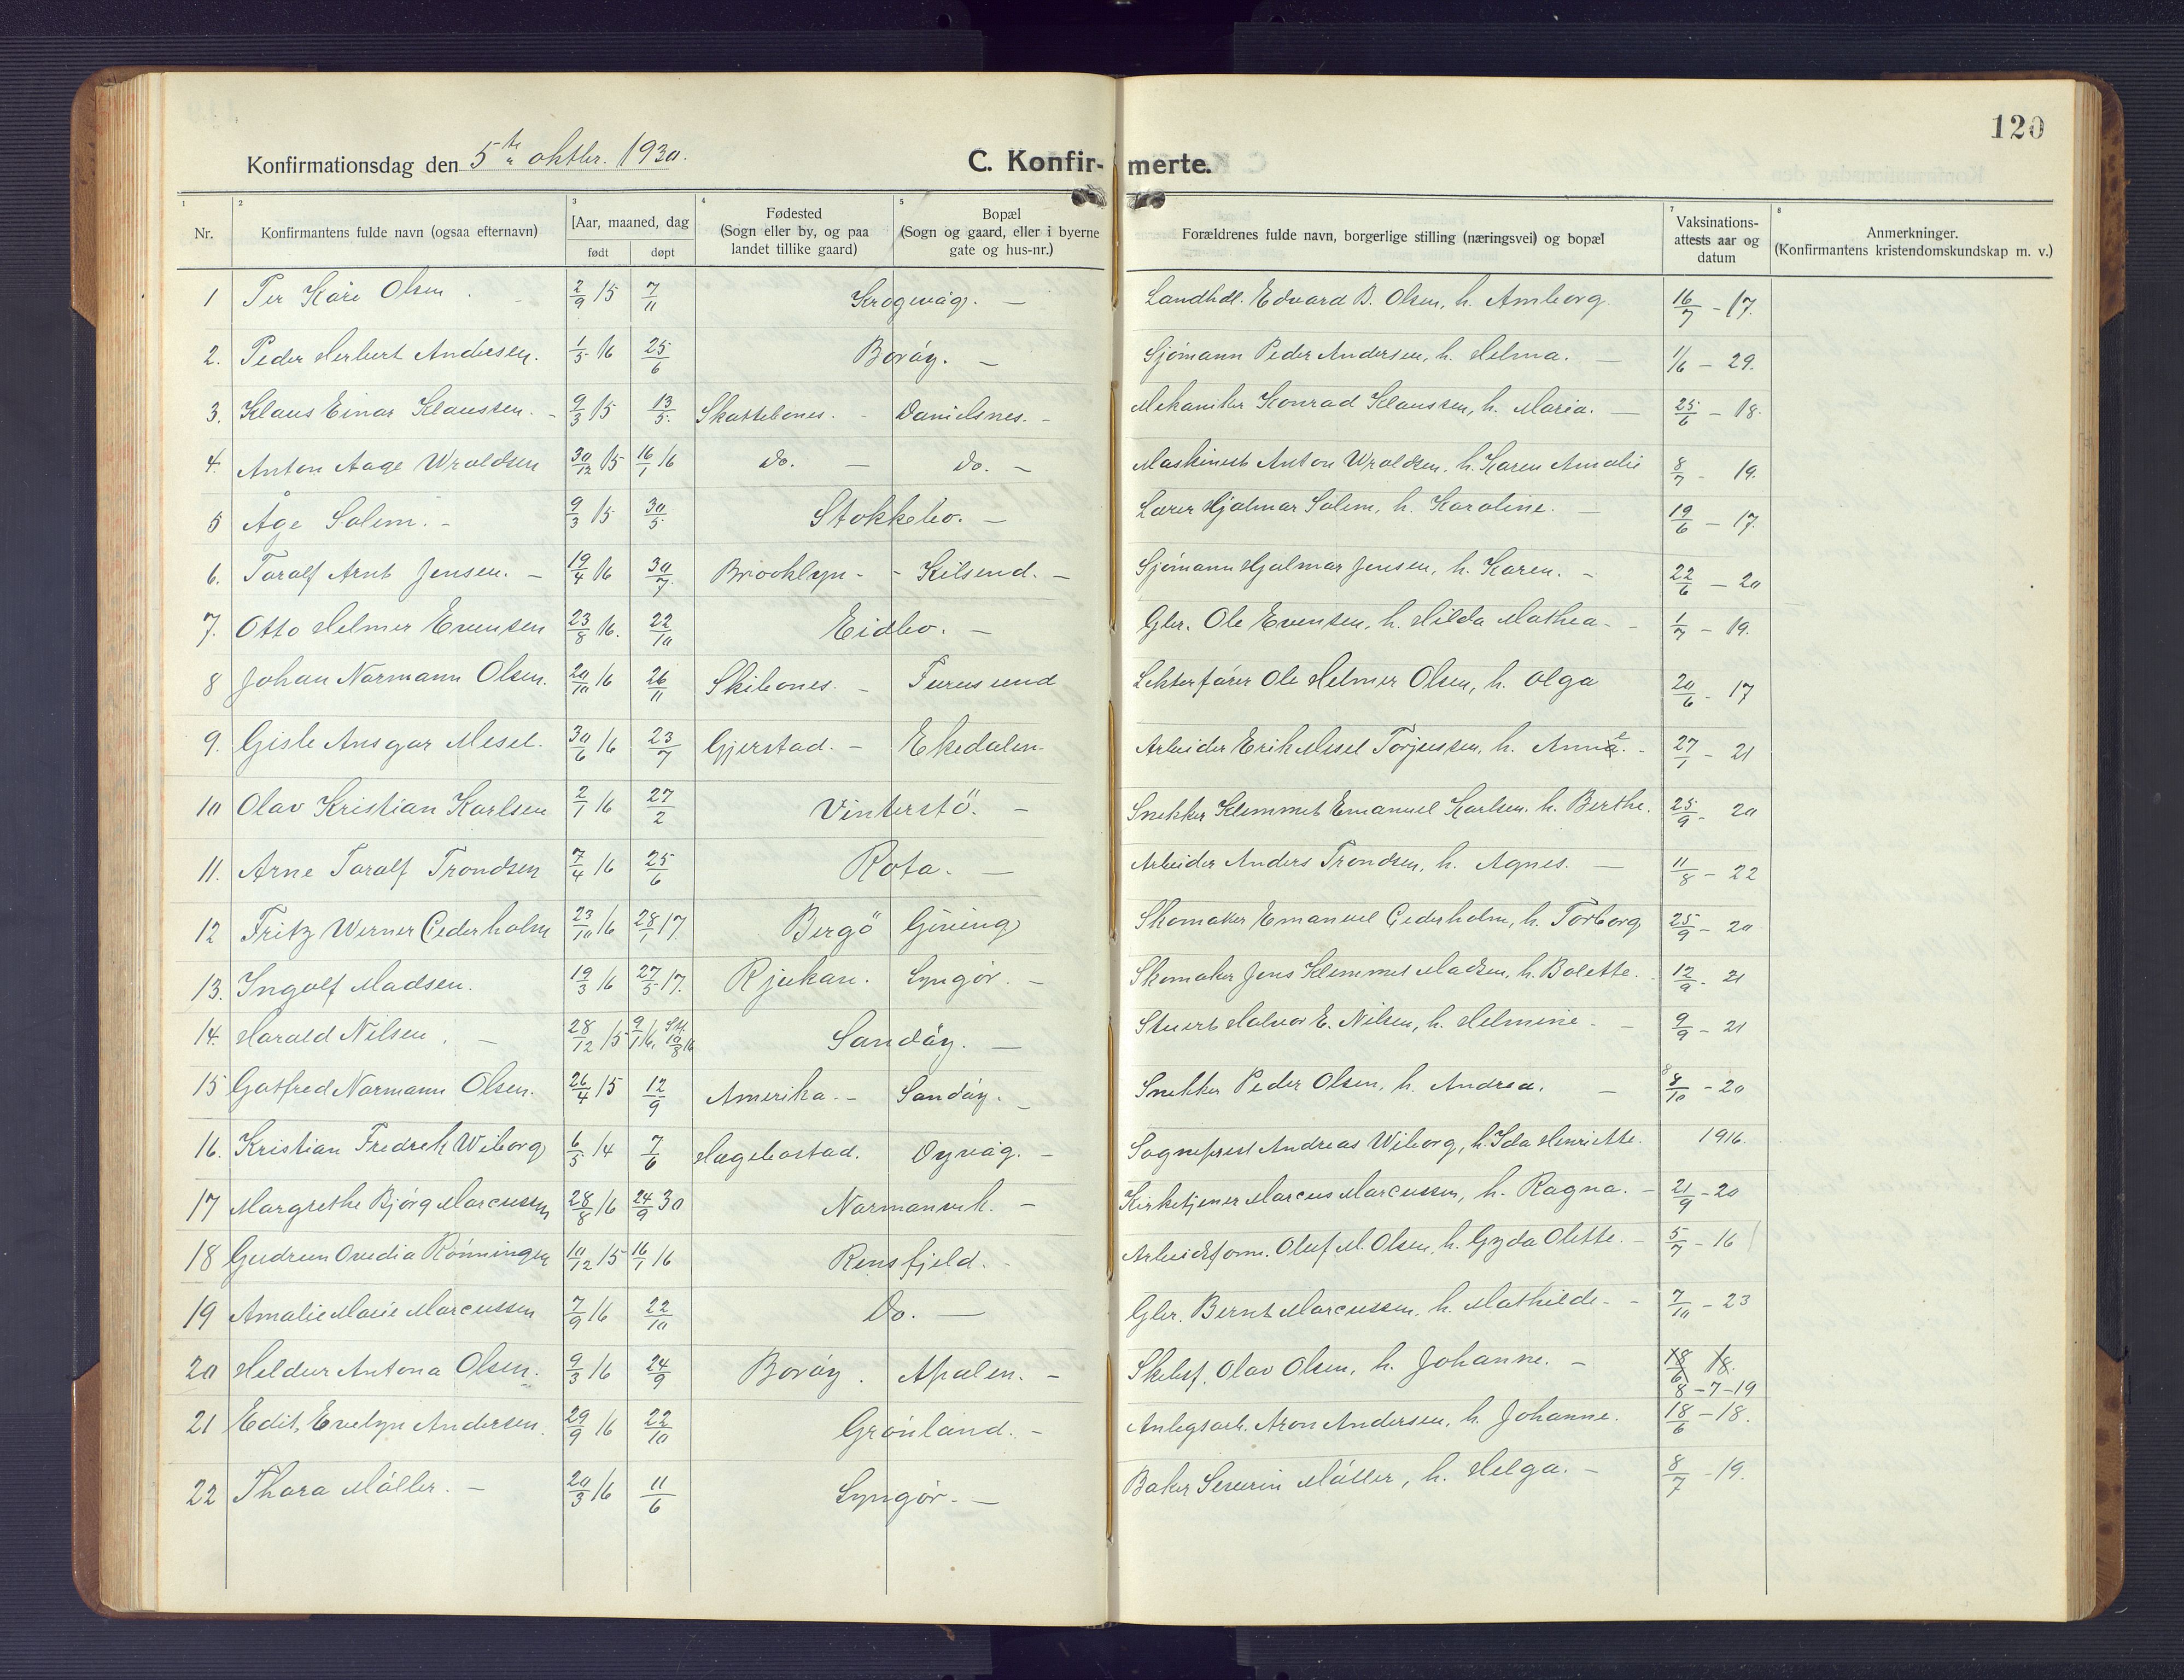 120
Konfirmationsdag den 5te oktbr. 1930.
C. Konfir- merte.
1 2 3 4 5 7 8
Nr. Konfirmantens fulde navn (ogsaa efternavn) [Aar, maaned, dag født døpt Fødested (Sogn eller by, og paa landet tillike gaard) Bopæl (Sogn og gaard, eller i byerne gate og hus-nr.) Forældrenes fulde navn, borgerlige stilling (næringsvei) og bopæl Vaksinations-attests aar og datum Anmerkninger. (Konfirmantens kristendomskundskap m. v.)
1 Per Kåre Olsen. 2/9 15 7/11 Krogevåg. — Landhdl. Edvard B. Olsen, h. Amborg. 16/7 - 17.
2. Peder Herbert Andersen. 1/5 16 25/6 Borøy. — Sjømann Peder Andersen, h. Helma. — 1/6 - 29.
3. Klaus Einar Klaussen. - 9/3 15 13/5. Skattebones. - Danielsnes. - Mekaniker Konrad Klaussen, h. Maria. — 25/6 - 18.
4. Anton Aage Wroldsen 30/12 15 16/1 16 Do. — Do. — Maskinist Anton Wroldsen, h. Karen Amalie 8/7 - 19.
5 Åge Solem. - 9/3 15 30/5 Stokkebo. — Lærer Hjalmar Solem, h. Karoline. — 19/6 - 17.
6. Taralf Arnt Jensen. — 19/4 16 30/7. Brooklyn - - Kilsund. — Sjømann Hjalmar Jensen, h. Karen. - 22/6 - 20
7. Otto Helmer Evensen 23/8 16. 22/10 Eidbo. — Gbr. Ole Evensen, h. Hilda Mathea - 1/7 - 19.
8 Johan Normann Olsen. 20/10 16 26/11 Skibones. - Furusund Lekterfører Ole Helmer Olsen, h. Olga 20/6 - 17
9. Gisle Ansgar Mesel. 30/6 16 23/7 Gjerstad. - Ekedalen. Arbeider Erik Mesel Torjussen, h. Anne. - 27/1 - 21
10 Olav Kristian Karlsen 2/1 16 27/2 Vinterstö. — Snekker Klemmet Emanuel Karlsen, h. Berthe. 25/9 - 20
11. Arne Taralf Trondsen 7/4 16 25/6 Rota. — Arbeider Anders Trondsen, h. Agnes. — 11/8 - 22
12 Fritz Werner Cederholm 23/10 16 28/1 17 Bergö Gjeving Skomaker Emanuel Cederholm, h. Torborg 25/9 - 20
13. Ingolf Madsen. 19/3 16 27/5 17. Rjukan. Lyngør. - Skomaker Jens Klemmet Madsen, h. Bolette. 12/9 - 21
14. Harald Nilsen. — 28/12 15 9/1 16, 10/8 16 Sandøy. — Stuert Halvor E. Nilsen, h. Helmine. — 9/9 - 21
15 Gotfred Normann Olsen. 26/4 15 12/9 Amerika. - Sandøy. - Snekker Peder Olsen, h. Andrea. — 8/10 - 20
16. Kristian Fredrek Wiborg 6/5 14 7/6 Hægebostad. Dyvåg. - Sogneprest Andreas Wiborg, h. Ida Henriette. 1916.
17 Margrethe Bjørg Marcussen 28/8 16 24/9 30 Normanvik. — Kirketjener Marcus Marcussen, h. Ragna. - 21/9 - 20
18 Gudrun Ovedia Rønningen 10/12 15 16/1 16 Rensfjeld. - Arbeidsform. Oluf M. Olsen, h. Gyda Olette. - 5/7 - 16
19 Amalie Marie Marcussen 7/9 16 22/10 Do. — Gbr. Bernt Marcussen, h. Mathilde - - 7/10 - 23
20 Heldur Antona Olsen. 9/3 16 24/9 Borøy. Apalen. - Skibsf. Olav Olsen, h. Johanne. - 18/6 18. 8-7-19
21 Edit, Evelyn Andersen. 29/9 16 22/10 Grønland. - Anlegsarb. Aron Andersen, h. Johanne. 18/6 - 18.
22 Thora Møller. - 20/3 16 11/6 Lyngør. — Baker Severin Møller, h. Helga. - 8/7 - 19.